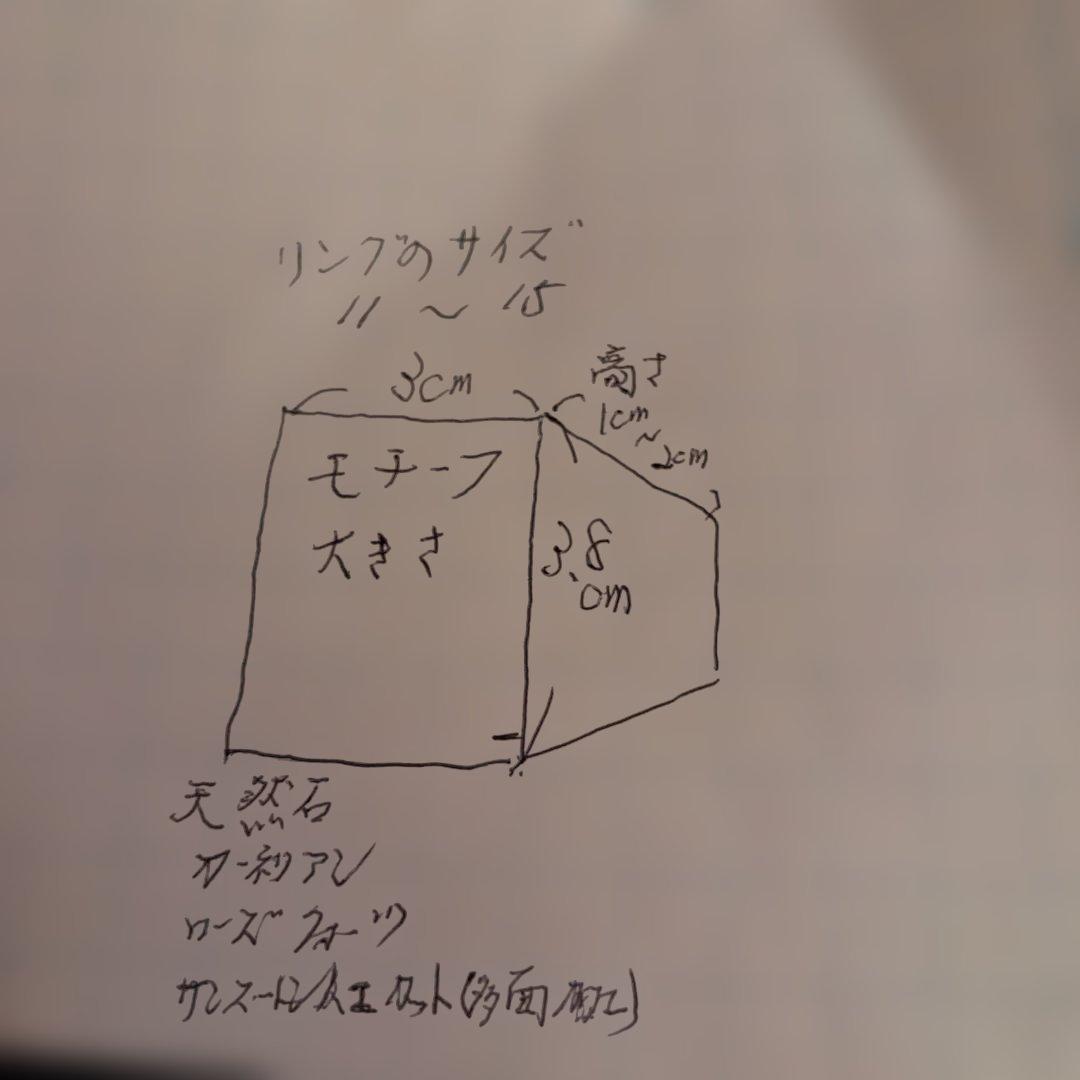 リングのサイズ
11 ~ 15
3cm
高さ
1cm
~
2cm
モチーフ
大きさ
3.8
cm
天然石
カーネリアン
ローズクォーツ
サンストーン人工カット(多面